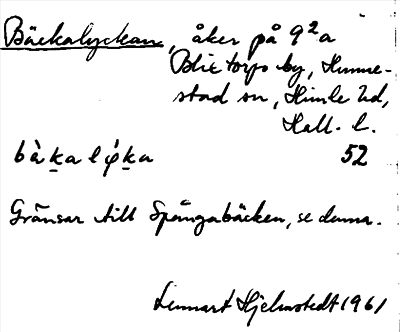 Bäckalyckan, åker på 9²a
Blixtorps by, Hunne-
stad sn, Himle hd,
Hall. l.
52
Gränsar till Spångabäcken, se denna.
Lennart Hjelmstedt 1961